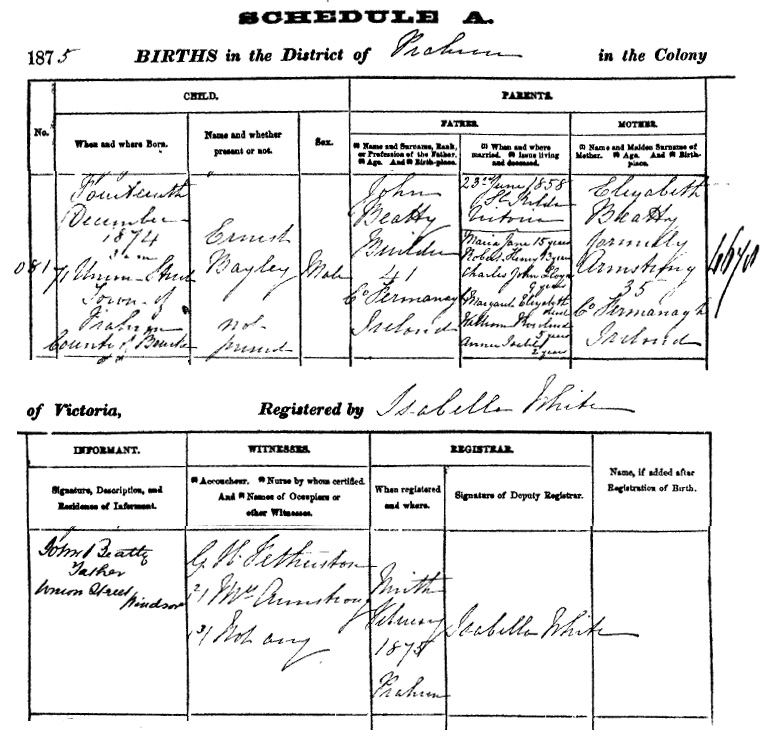 SCHEDULE A.
1875 BIRTHS in the District of Prahran in the Colony
CHILD. PARENTS.
FATHER. MOTHER.
No. When and where Born. Name and whether present or not. Sex. (1) Name and Surname, Rank, or Profession of the Father. (2) Age. And (3) Birth-place. (1) When and where married. (2) Issue living and deceased. (1) Name and Maiden Surname of Mother. (2) Age. And (3) Birth-place.
Fourteenth
December
1874
71 Union Street
Town of
Prahran
County of Bourke
Ernest
Bayley
not
present
Male
John
Beatty
Builder
41
Co Fermanagh
Ireland
23rd June 1858
St Kilda
Victoria
Maria Jane 15 years
Robert Henry 13 years
Charles John Lloyd
9 years
Margaret Elizabeth
dead
William
5 years
Annie Isabel
2 years
Elizabeth
Beatty
formerly
Armstrong
35
Co Fermanagh
Ireland
of Victoria, Registered by Isabella White
INFORMANT. WITNESSES. REGISTRAR.
Signature, Description, and Residence of Informant. (1) Accoucheur. (2) Nurse by whom certified. And (3) Names of Occupiers or other Witnesses. When registered and where. Signature of Deputy Registrar. Name, if added after Registration of Birth.
John Beatty
Father
Union Street
Windsor
G. H. Fetherston
(2) Mrs Armstrong
(3) Not any
Ninth
February
1875
Prahran
Isabella White